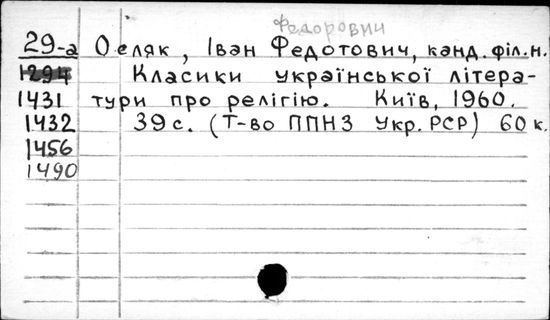 Федорович
29-а Оселяк, Іван Федотович, канд. філ.н.
1294 Класики української літера-
1431 тури про релігію. Київ, 1960.
1432 39 с. (Т-во ППНЗ Укр. РСР) 60 к.
1456
1490